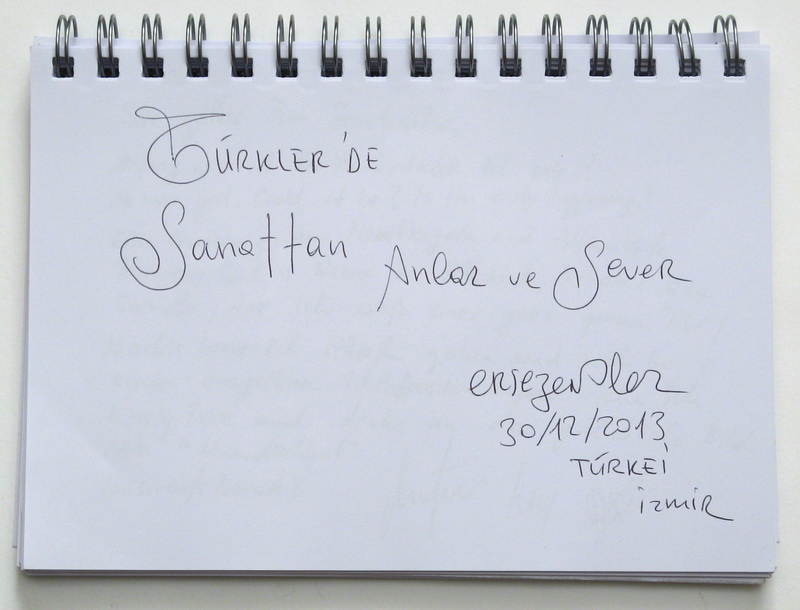 TÜRKLER'DE
Sanattan Anlar ve Sever
30/12/2013
TÜRKEİ
İzmir